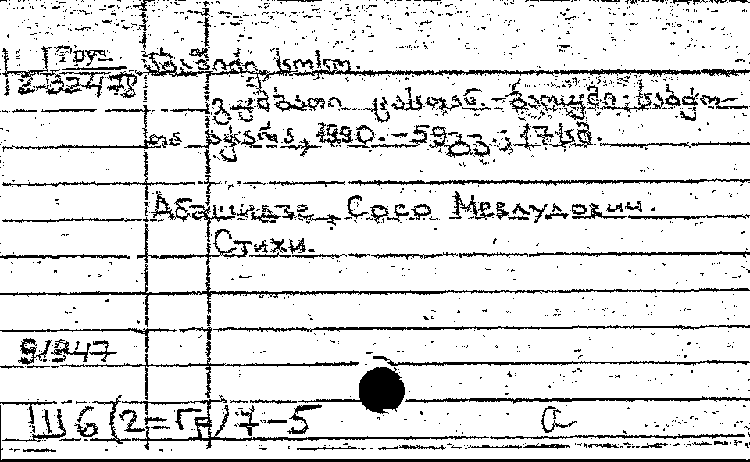 Груз.
2-32478
აბაშიძე სოსო.
გუმბათი ცასთან. - ბათუმი: საბჭო-
თა აჭარა, 1990. - 59გვ.; 17სმ.
Абашидзе, Сосо Мевлудович.
Стихи.
91947
Ш6(2=Гр)7-5 а